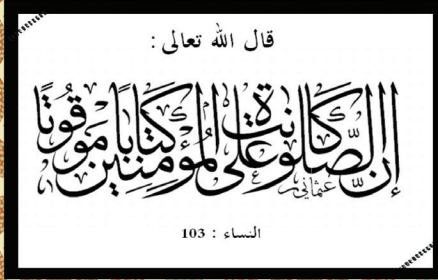 قال الله تعالى :
إن الصلوة كانت على المؤمنين كتابا موقوتا
عثماني
النساء : 103